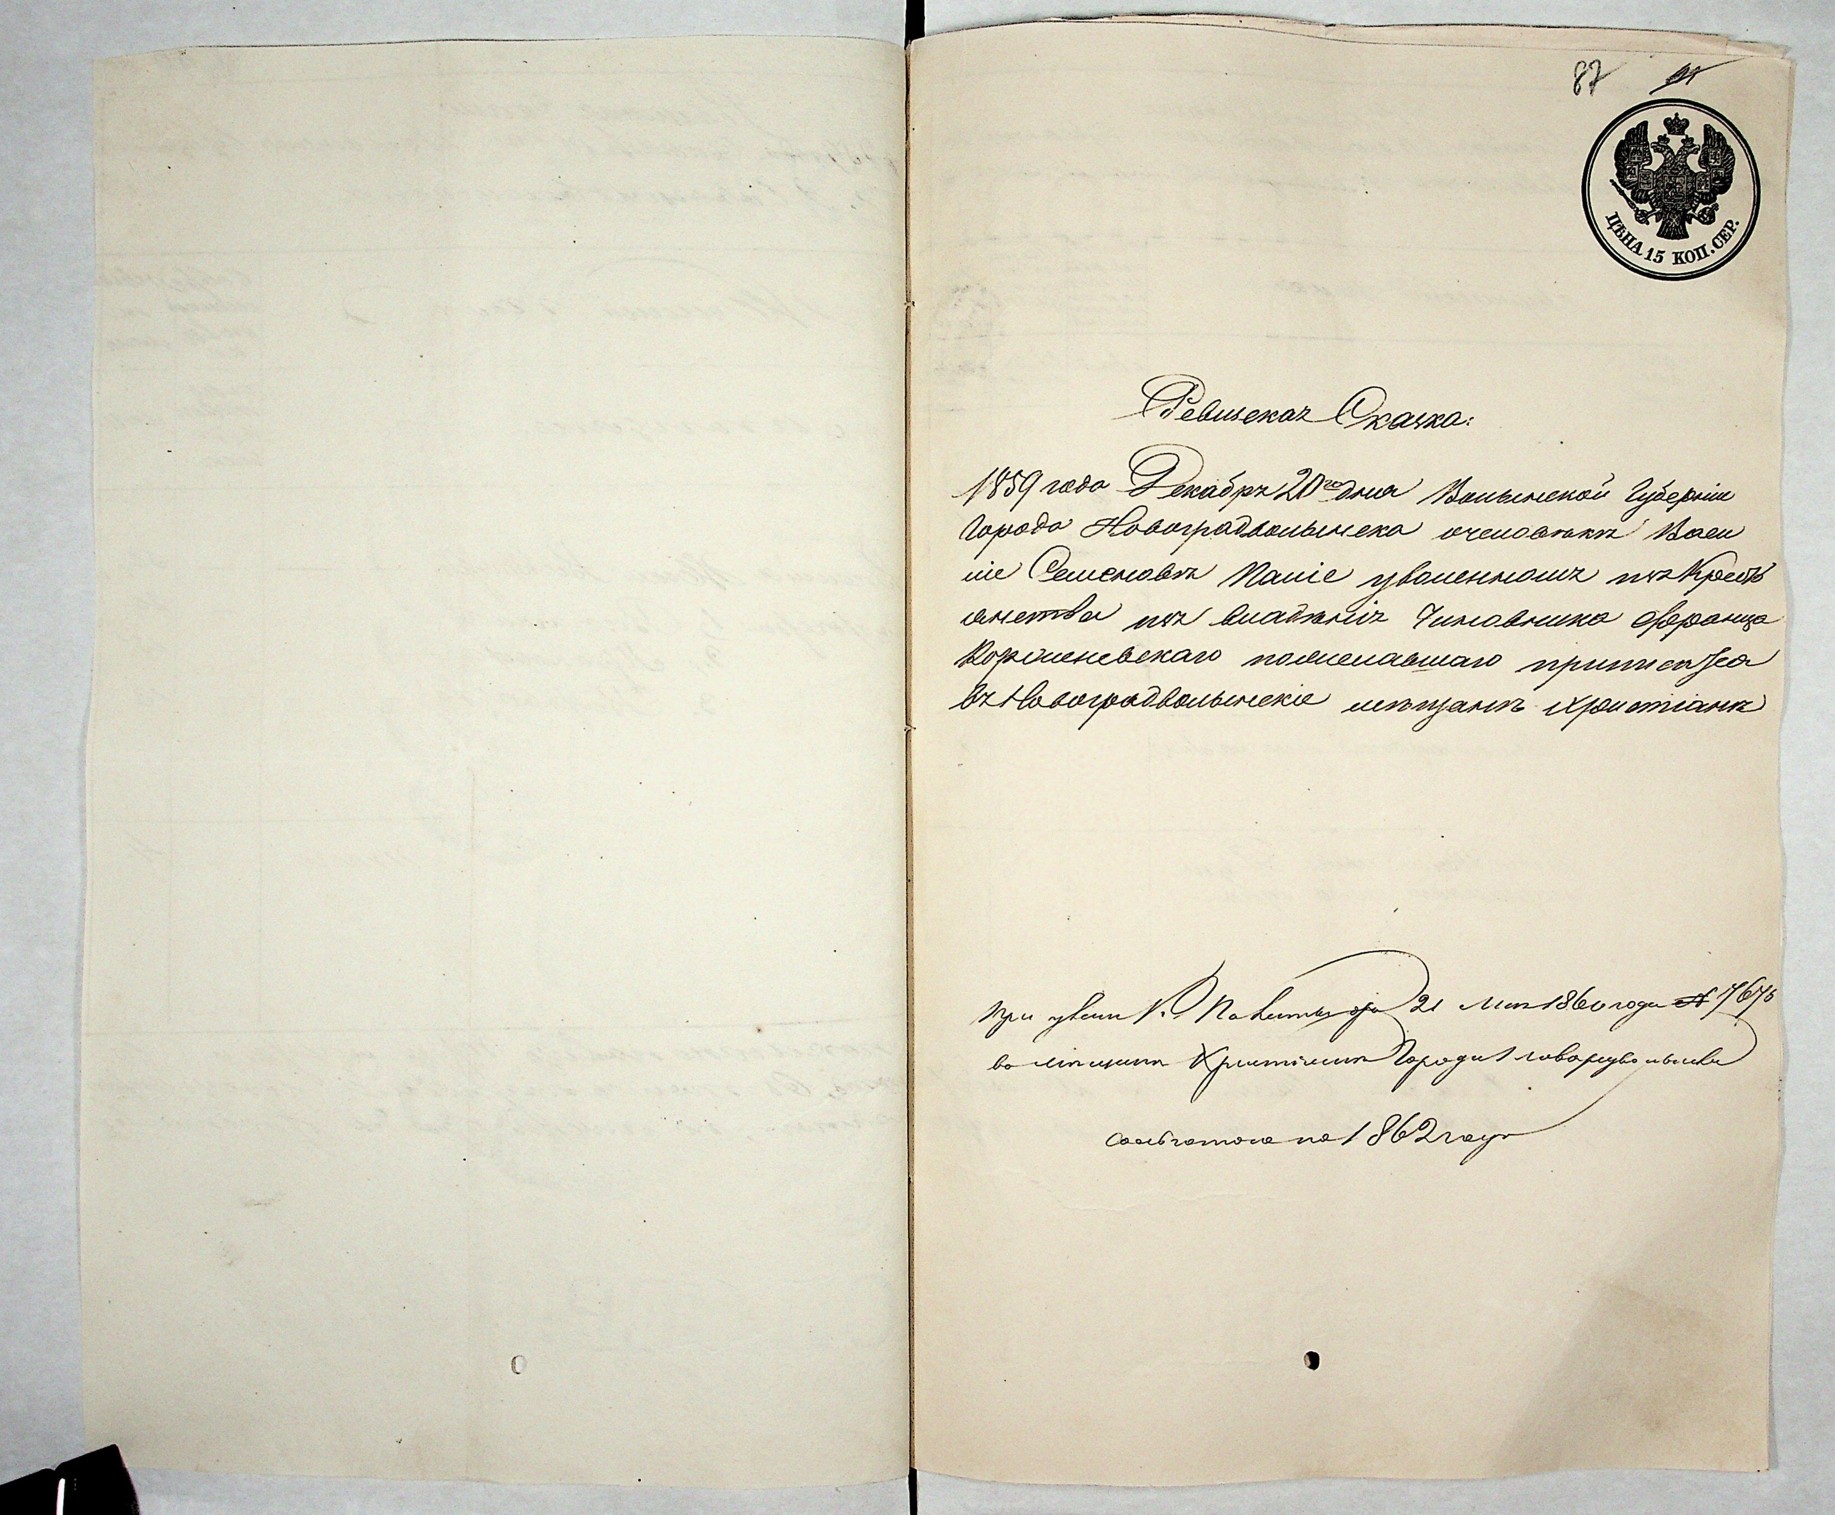 87
ЦѢНА 15 КОП. СЕР.
Ревизская Сказка.
1859 года Декабря 20го дня Волынской Губерніи
Города Новоградволынска о человѣкѣ Васи
ліе Семеновѣ уволенномъ изъ Кресть
янства изъ владѣнія Чиновника Франца
пожелавшаго приписатся
въ Новоградволынскіе мѣщане Христіане
При указѣ К. П. 21 Мая 1860 года №
въ мѣщане Христіане Города Новоградволынска
на 1862 годъ